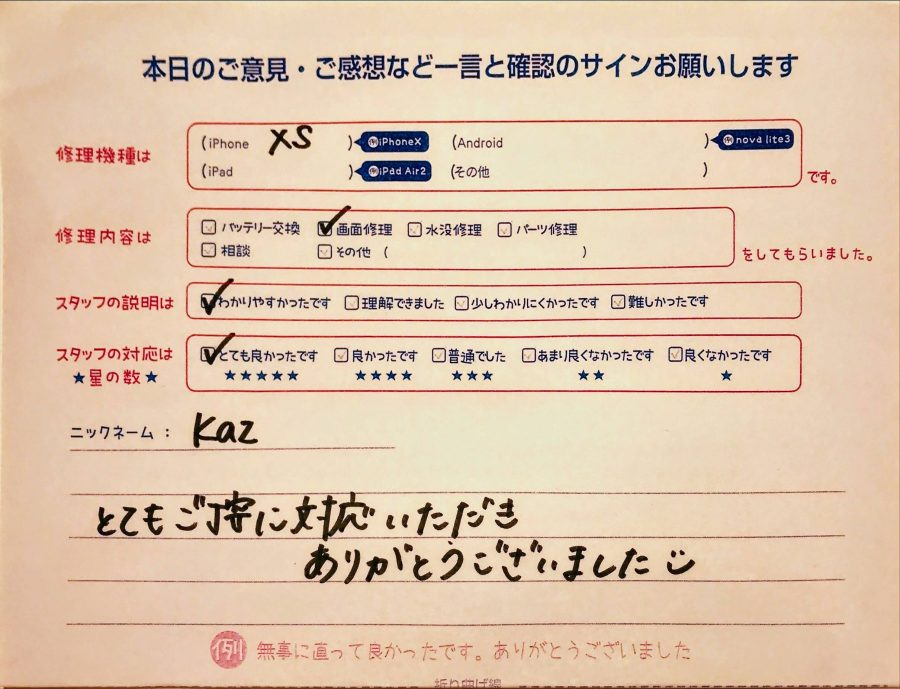 本日のご意見・ご感想など一言と確認のサインお願いします
修理機種は (iPhone XS ) 例iPhoneX (Android ) 例nova lite3
(iPad ) 例iPad Air2 (その他 ) です。
修理内容は バッテリー交換 画面修理 水没修理 パーツ修理
相談 その他 ( ) をしてもらいました。
スタッフの説明は わかりやすかったです 理解できました 少しわかりにくかったです 難しかったです
スタッフの対応は とても良かったです 良かったです 普通でした あまり良くなかったです 良くなかったです
★星の数★ ★★★★★ ★★★★ ★★★ ★★ ★
ニックネーム： Kaz
とてもご丁寧に対応いただき
ありがとうございました
例 無事に直って良かったです。ありがとうございました
折り曲げ線